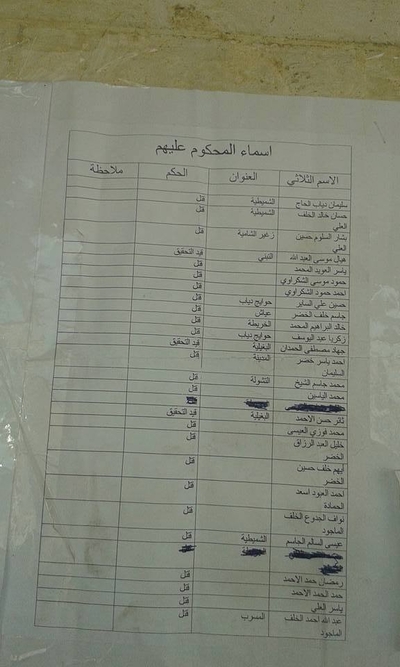 اسماء المحكوم عليهم
الاسم الثلاثي العنوان الحكم ملاحظة
سليمان دياب الحاج الشميطية قتل
حسان خالد الخلف الشميطية قتل
العلي
بشار السلوم حسين زغير الشامية قتل
العلي
هيال موسى العبد الله التبني قيد التحقيق
ياسر العويد المحمد قتل
حمود موسى الشكراوي قتل
احمد حمود الشكراوي قتل
حسين علي الساير حوايج دياب قتل
جاسم خلف الخضر عياش قتل
خالد البراهيم المحمد الخريطة قتل
زكريا عبد اليوسف حوايج دياب قتل
جهاد مصطفى الحمدان البغيلية قيد التحقيق
احمد ياسر خضر المدينة قتل
السليمان
محمد جاسم الشيخ الشولة قتل
محمد الياسين قتل
ثائر حسن الاحمد البغيلية قيد التحقيق
محمد فوزي العيسى قتل
خليل العبد الرزاق قتل
الخضر
أيهم خلف حسين قتل
الخضر
احمد العبود اسعد قتل
الحمادة
نواف الجدوع الخلف قتل
الماجود
عيسى السالم الجاسم الشميطية قتل
رمضان حمد الاحمد قتل
حمد الحمد الاحمد قتل
ياسر العلي قتل
عبد الله احمد الخلف المسرب قتل
الماجود